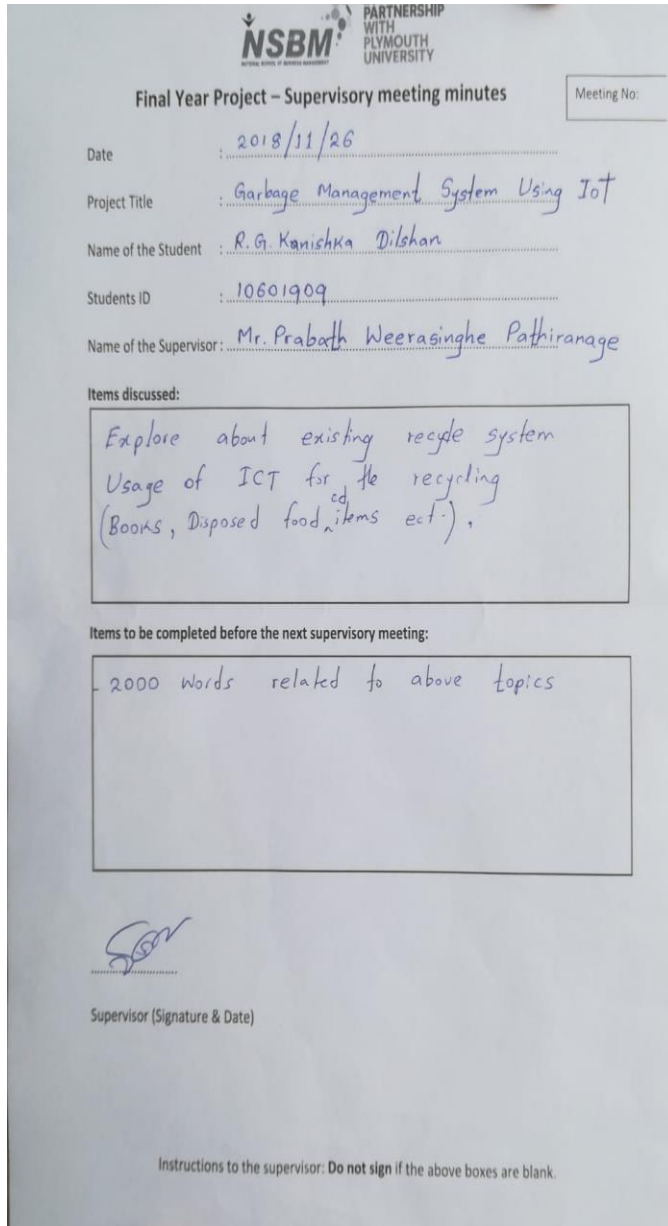 PARTNERSHIP
WITH
PLYMOUTH
UNIVERSITY
NSBM
NATIONAL SCHOOL OF BUSINESS MANAGEMENT
Final Year Project – Supervisory meeting minutes
Meeting No:
Date : 2018/11/26
Project Title : Garbage Management System Using IoT
Name of the Student : R.G. Kanishka Dilshan
Students ID : 10601909
Name of the Supervisor : Mr. Prabath Weerasinghe Pathiranage
Items discussed:
Explore about existing recycle system
Usage of ICT for the recycling
(Books, Disposed food, cd, items ect.).
Items to be completed before the next supervisory meeting:
- 2000 words related to above topics
Supervisor (Signature & Date)
Instructions to the supervisor: Do not sign if the above boxes are blank.